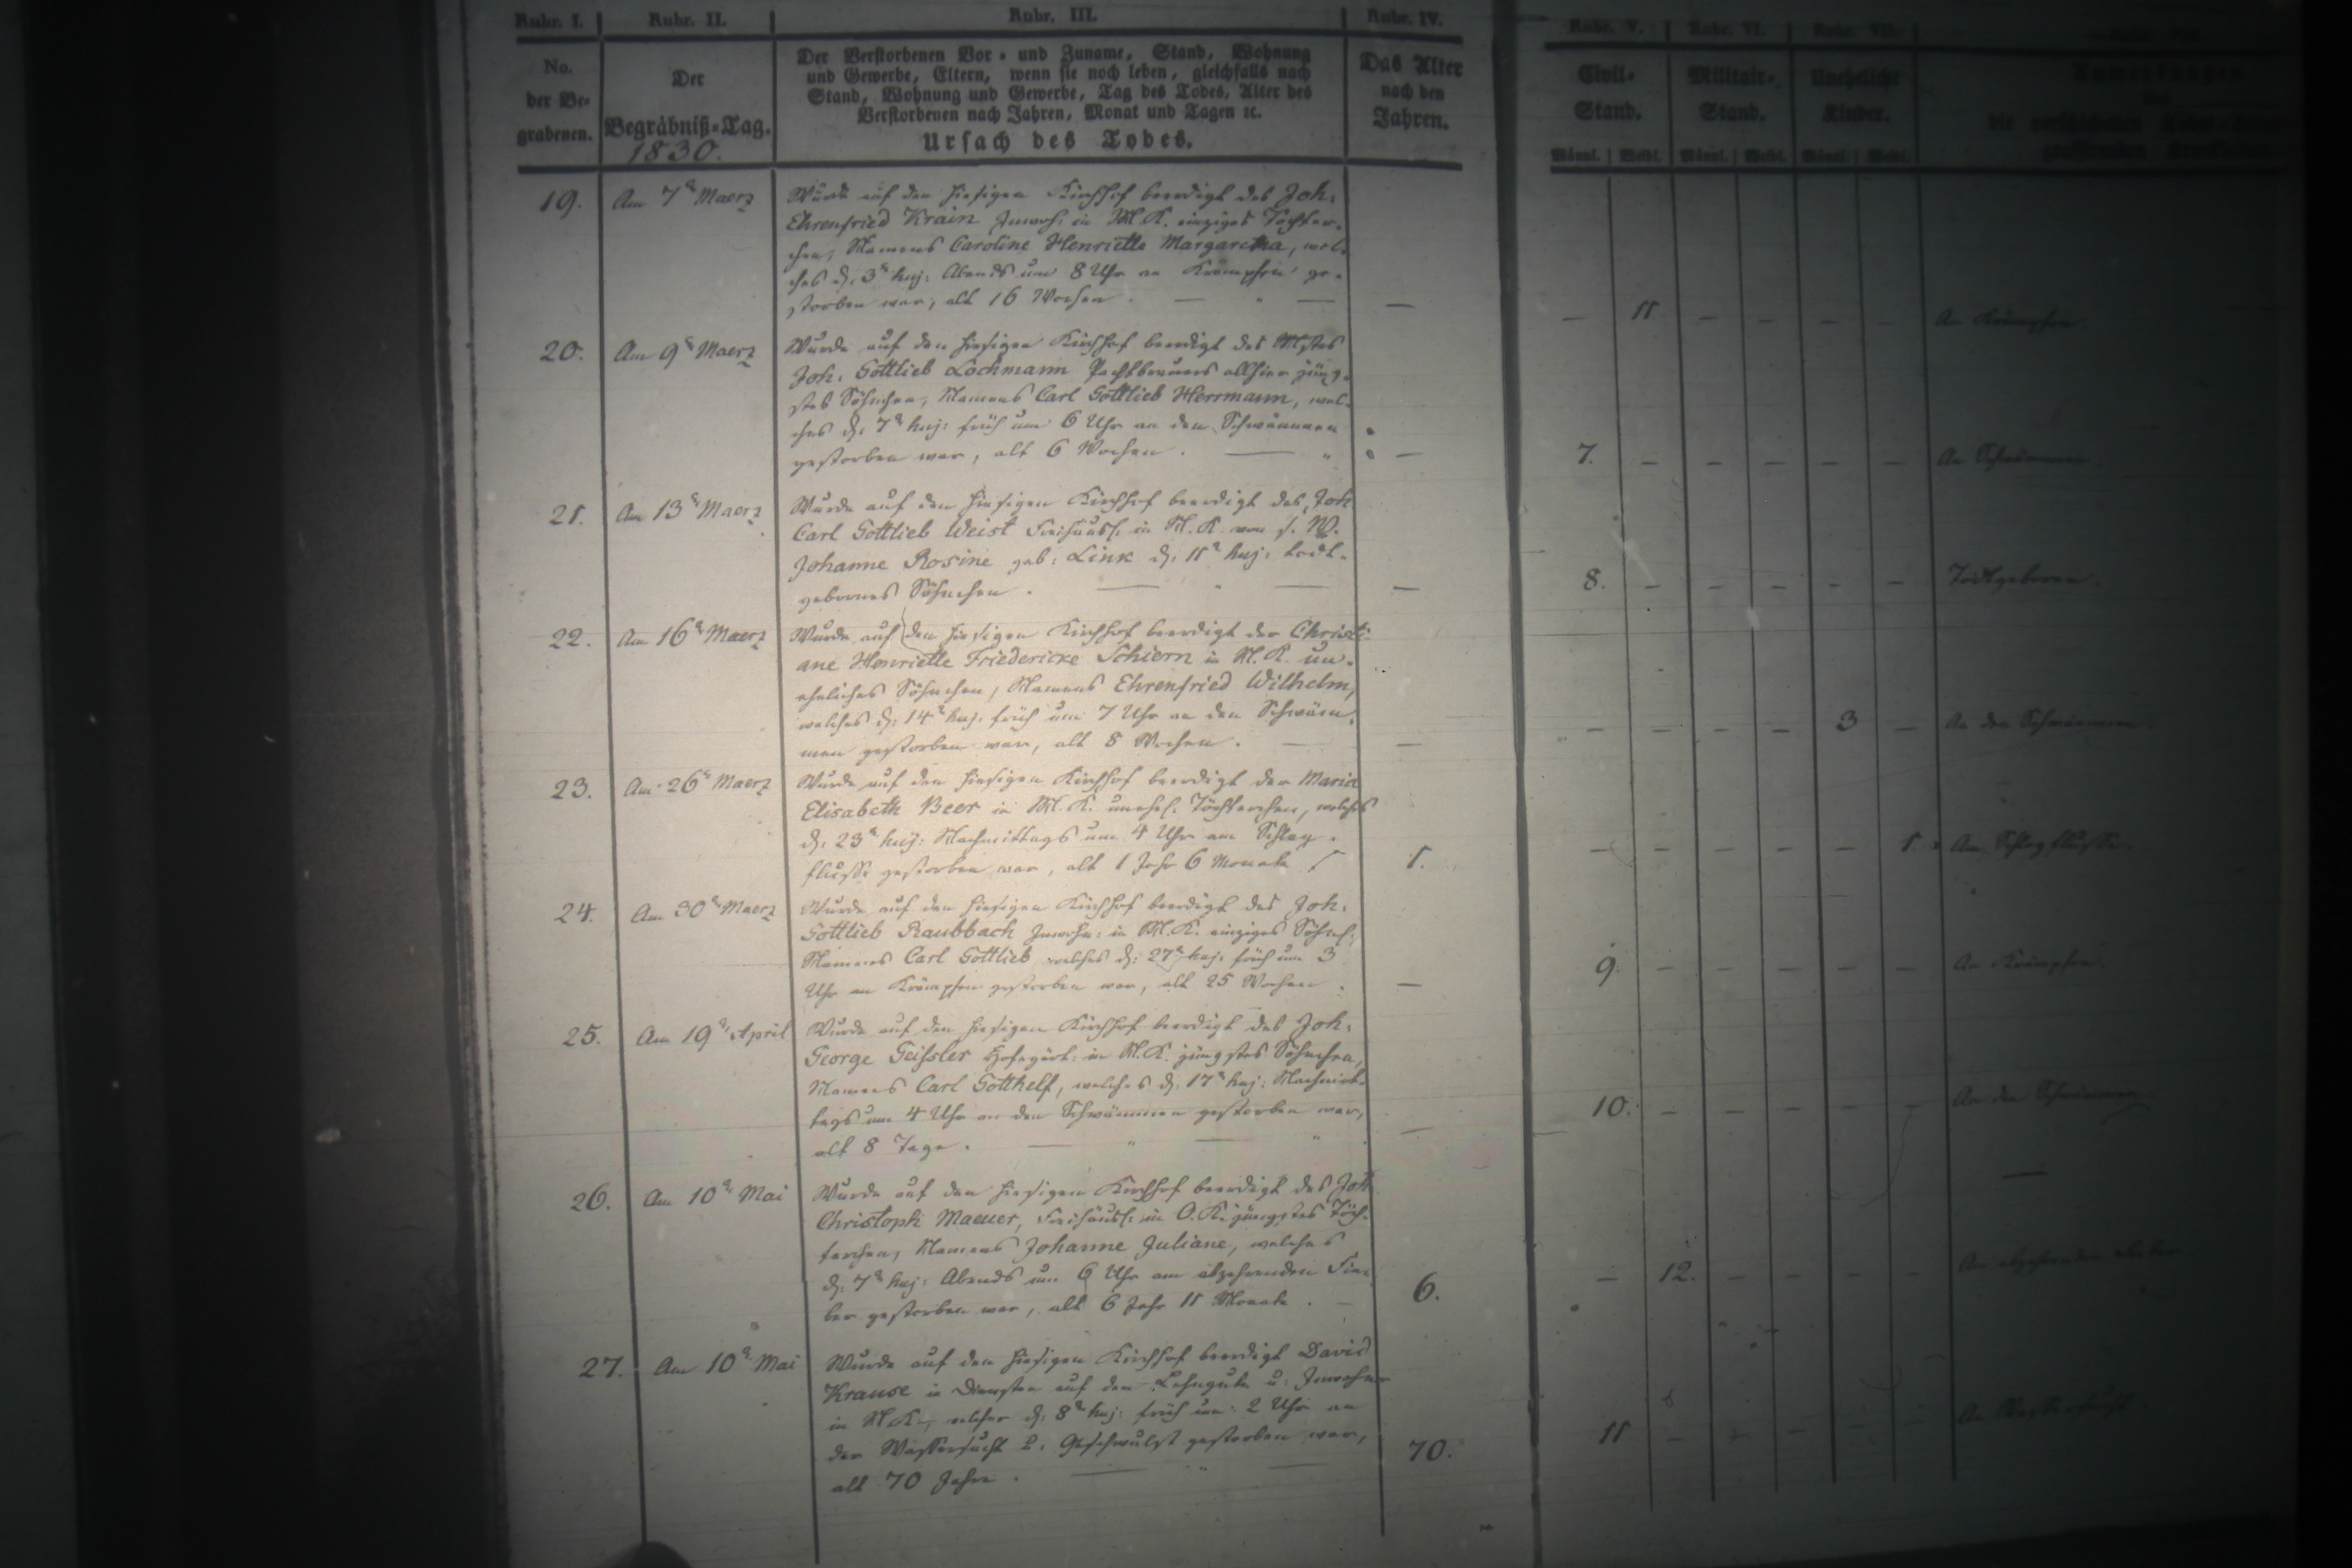 Rubr. I. Rubr. II. Rubr. III. Rubr. IV. Rubr. V. Rubr. VI. Rubr. VII.
No. der Be- grabenen.
Der Begräbniß-Tag. 1830.
Der Verstorbenen Vor- und Zuname, Stand, Wohnung
und Gewerbe, Eltern, wenn sie noch leben, gleichfalls nach
Stand, Wohnung und Gewerbe, Tag des Todes, Alter des
Verstorbenen nach Jahren, Monat und Tagen ꝛc.
Ursach des Todes.
Das Alter nach den Jahren.
Civil- Stand.
Militair- Stand.
Uneheliche Kinder.
Männl. Weibl. Männl. Weibl. Männl. Weibl.
19. Am 7t Maerz Wurde auf den hiesigen Kirchhof beerdigt des Joh:
Ehrenfried Krain Inwoh: in M.K. einziges Töchter-
chen, Namens Caroline Henriette Margaretha, wel-
ches d. 3t huj: Abends um 8 Uhr an Krämpfen ge-
storben war, alt 16 Wochen. — " — — — 11 — — — — An Krämpfen.
20. Am 9t Maerz Wurde auf den hiesigen Kirchhof beerdigt des Mstrs
Joh: Gottlieb Lochmann Pachtbrauers allhier jüng-
stes Söhnchen, Namens Carl Gottlieb Herrmann, wel-
ches d. 7t huj: früh um 6 Uhr an den Schwämmen
gestorben war, alt 6 Wochen. — " — 7. — — — — — An Schwämmen.
21. Am 13t Maerz Wurde auf den hiesigen Kirchhof beerdigt des Joh
Carl Gottlieb Weist Freihäusl. in M.K. von s. W.
Johanne Rosine geb: Link d. 11t huj: todt-
gebornes Söhnchen. — " — — 8. — — — — — Todtgeboren.
22. Am 16t Maerz Wurde auf den hiesigen Kirchhof beerdigt der Christi-
ane Henriette Friedericke Schiern in M.K. un-
eheliches Söhnchen, Namens Ehrenfried Wilhelm,
welches d: 14t huj: früh um 7 Uhr an den Schwäm-
men gestorben war, alt 8 Wochen. — — — — — — 3 — An den Schwämmen.
23. Am 26t Maerz Wurde auf den hiesigen Kirchhof beerdigt der Maria
Elisabeth Beer in M.K. unehel. Töchterchen, welches
d: 23t huj: Nachmittags um 4 Uhr am Schlag-
flusse gestorben war, alt 1 Jahr 6 Monate 1. — — — — — 1 Am Schlagflusse.
24. Am 30t Maerz Wurde auf den hiesigen Kirchhof beerdigt des Joh:
Gottlieb Raubbach Inwohn: in M.K. einziges Söhnch:
Namens Carl Gottlieb welches d: 27t huj: früh um 3
Uhr an Krämpfen gestorben war, alt 25 Wochen. — 9. — — — — — An Krämpfen.
25. Am 19t April Wurde auf den hiesigen Kirchhof beerdigt des Joh:
George Geissler Hofegärt: in M.K. jüngstes Söhnchen,
Namens Carl Gotthelf, welches d. 17t huj: Nachmit-
tags um 4 Uhr an den Schwämmen gestorben war,
alt 8 Tage. — " — " — 10. — — — — — An den Schwämmen.
26. Am 10t Mai Wurde auf den hiesigen Kirchhof beerdigt des Joh
Christoph Maeuer, Freihäusl: in O.K. jüngstes Töch-
terchen, Namens Johanne Juliane, welches
d: 7t huj: Abends um 6 Uhr am abzehrenden Fie-
ber gestorben war, alt 6 Jahr 11 Monate. — 6. — 12. — — — — An abzehrenden Fieber.
27. Am 10t Mai Wurde auf den hiesigen Kirchhof beerdigt David
Krause in Diensten auf dem Lehngute u: Inwohner
in M.K., welcher d: 8t huj: früh um 2 Uhr an
der Wassersucht u: Geschwulst gestorben war,
alt 70 Jahre. — " — 70. 11 — — — — — An Wassersucht.